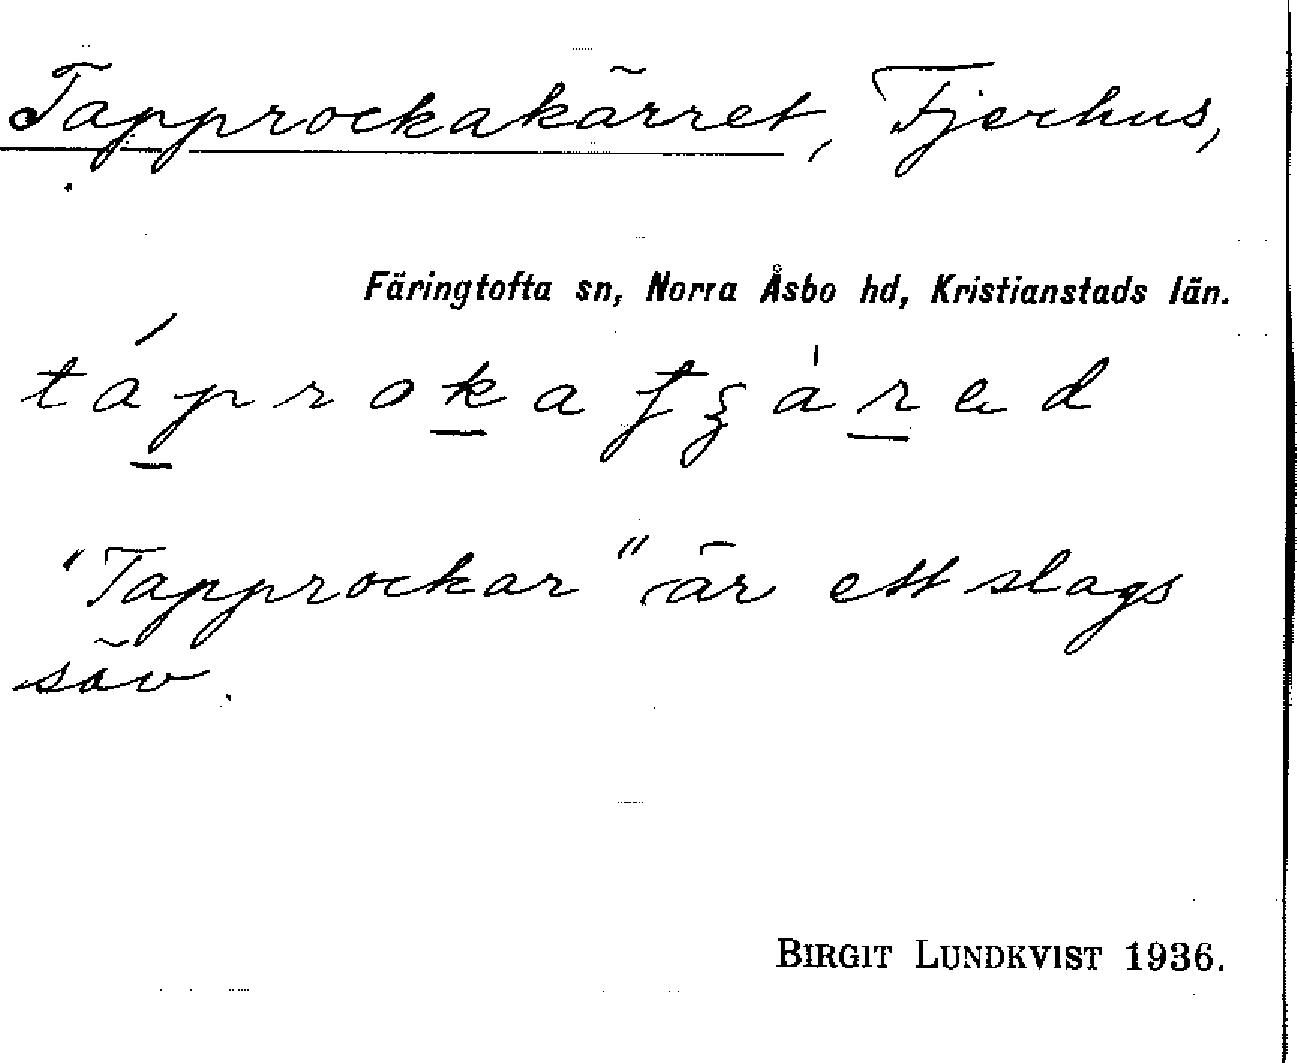 Tapprockakärret, Fjerhus,
Färingtofta sn, Norra Åsbo hd, Kristianstads län.
"Tapprockar" är ett slags
säv.
BIRGIT LUNDKVIST 1936.